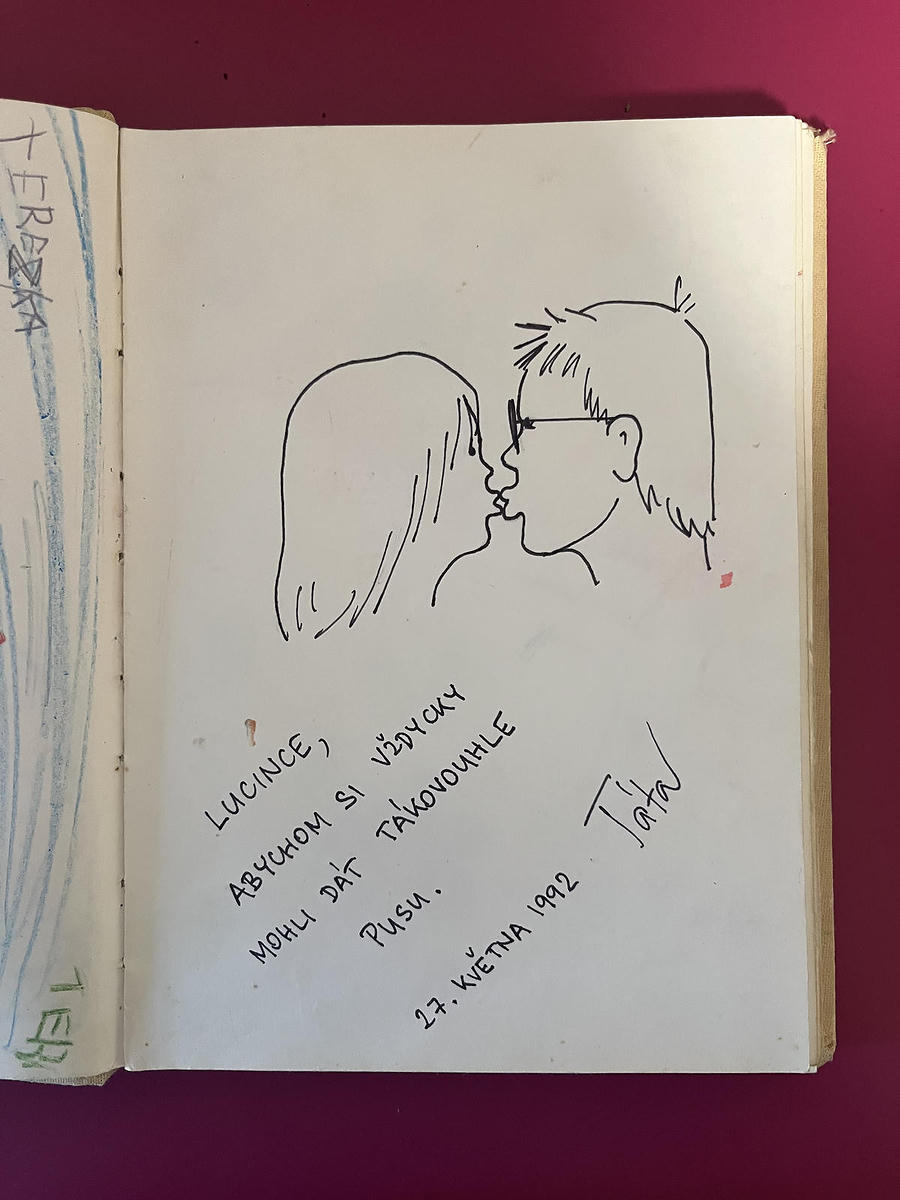 TEREZKA
LUCINCE,
ABYCHOM SI VŽDYCKY
MOHLI DÁT TÁKOVOUHLE
PUSU.
27. KVĚTNA 1992
Táta